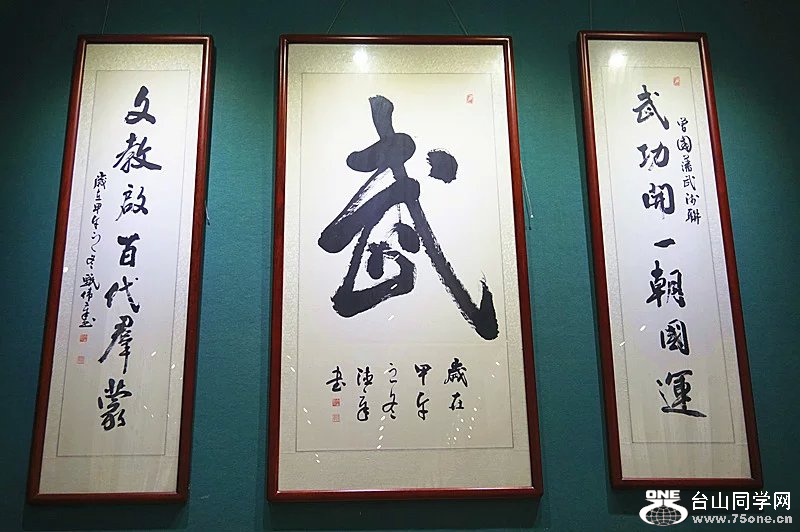 武功開一朝國運
曾國藩武聯
武
歲在
甲午
之冬
書
文教啟百代羣蒙
歲在甲午之冬
ONE
台山同学网
www.75one.cn